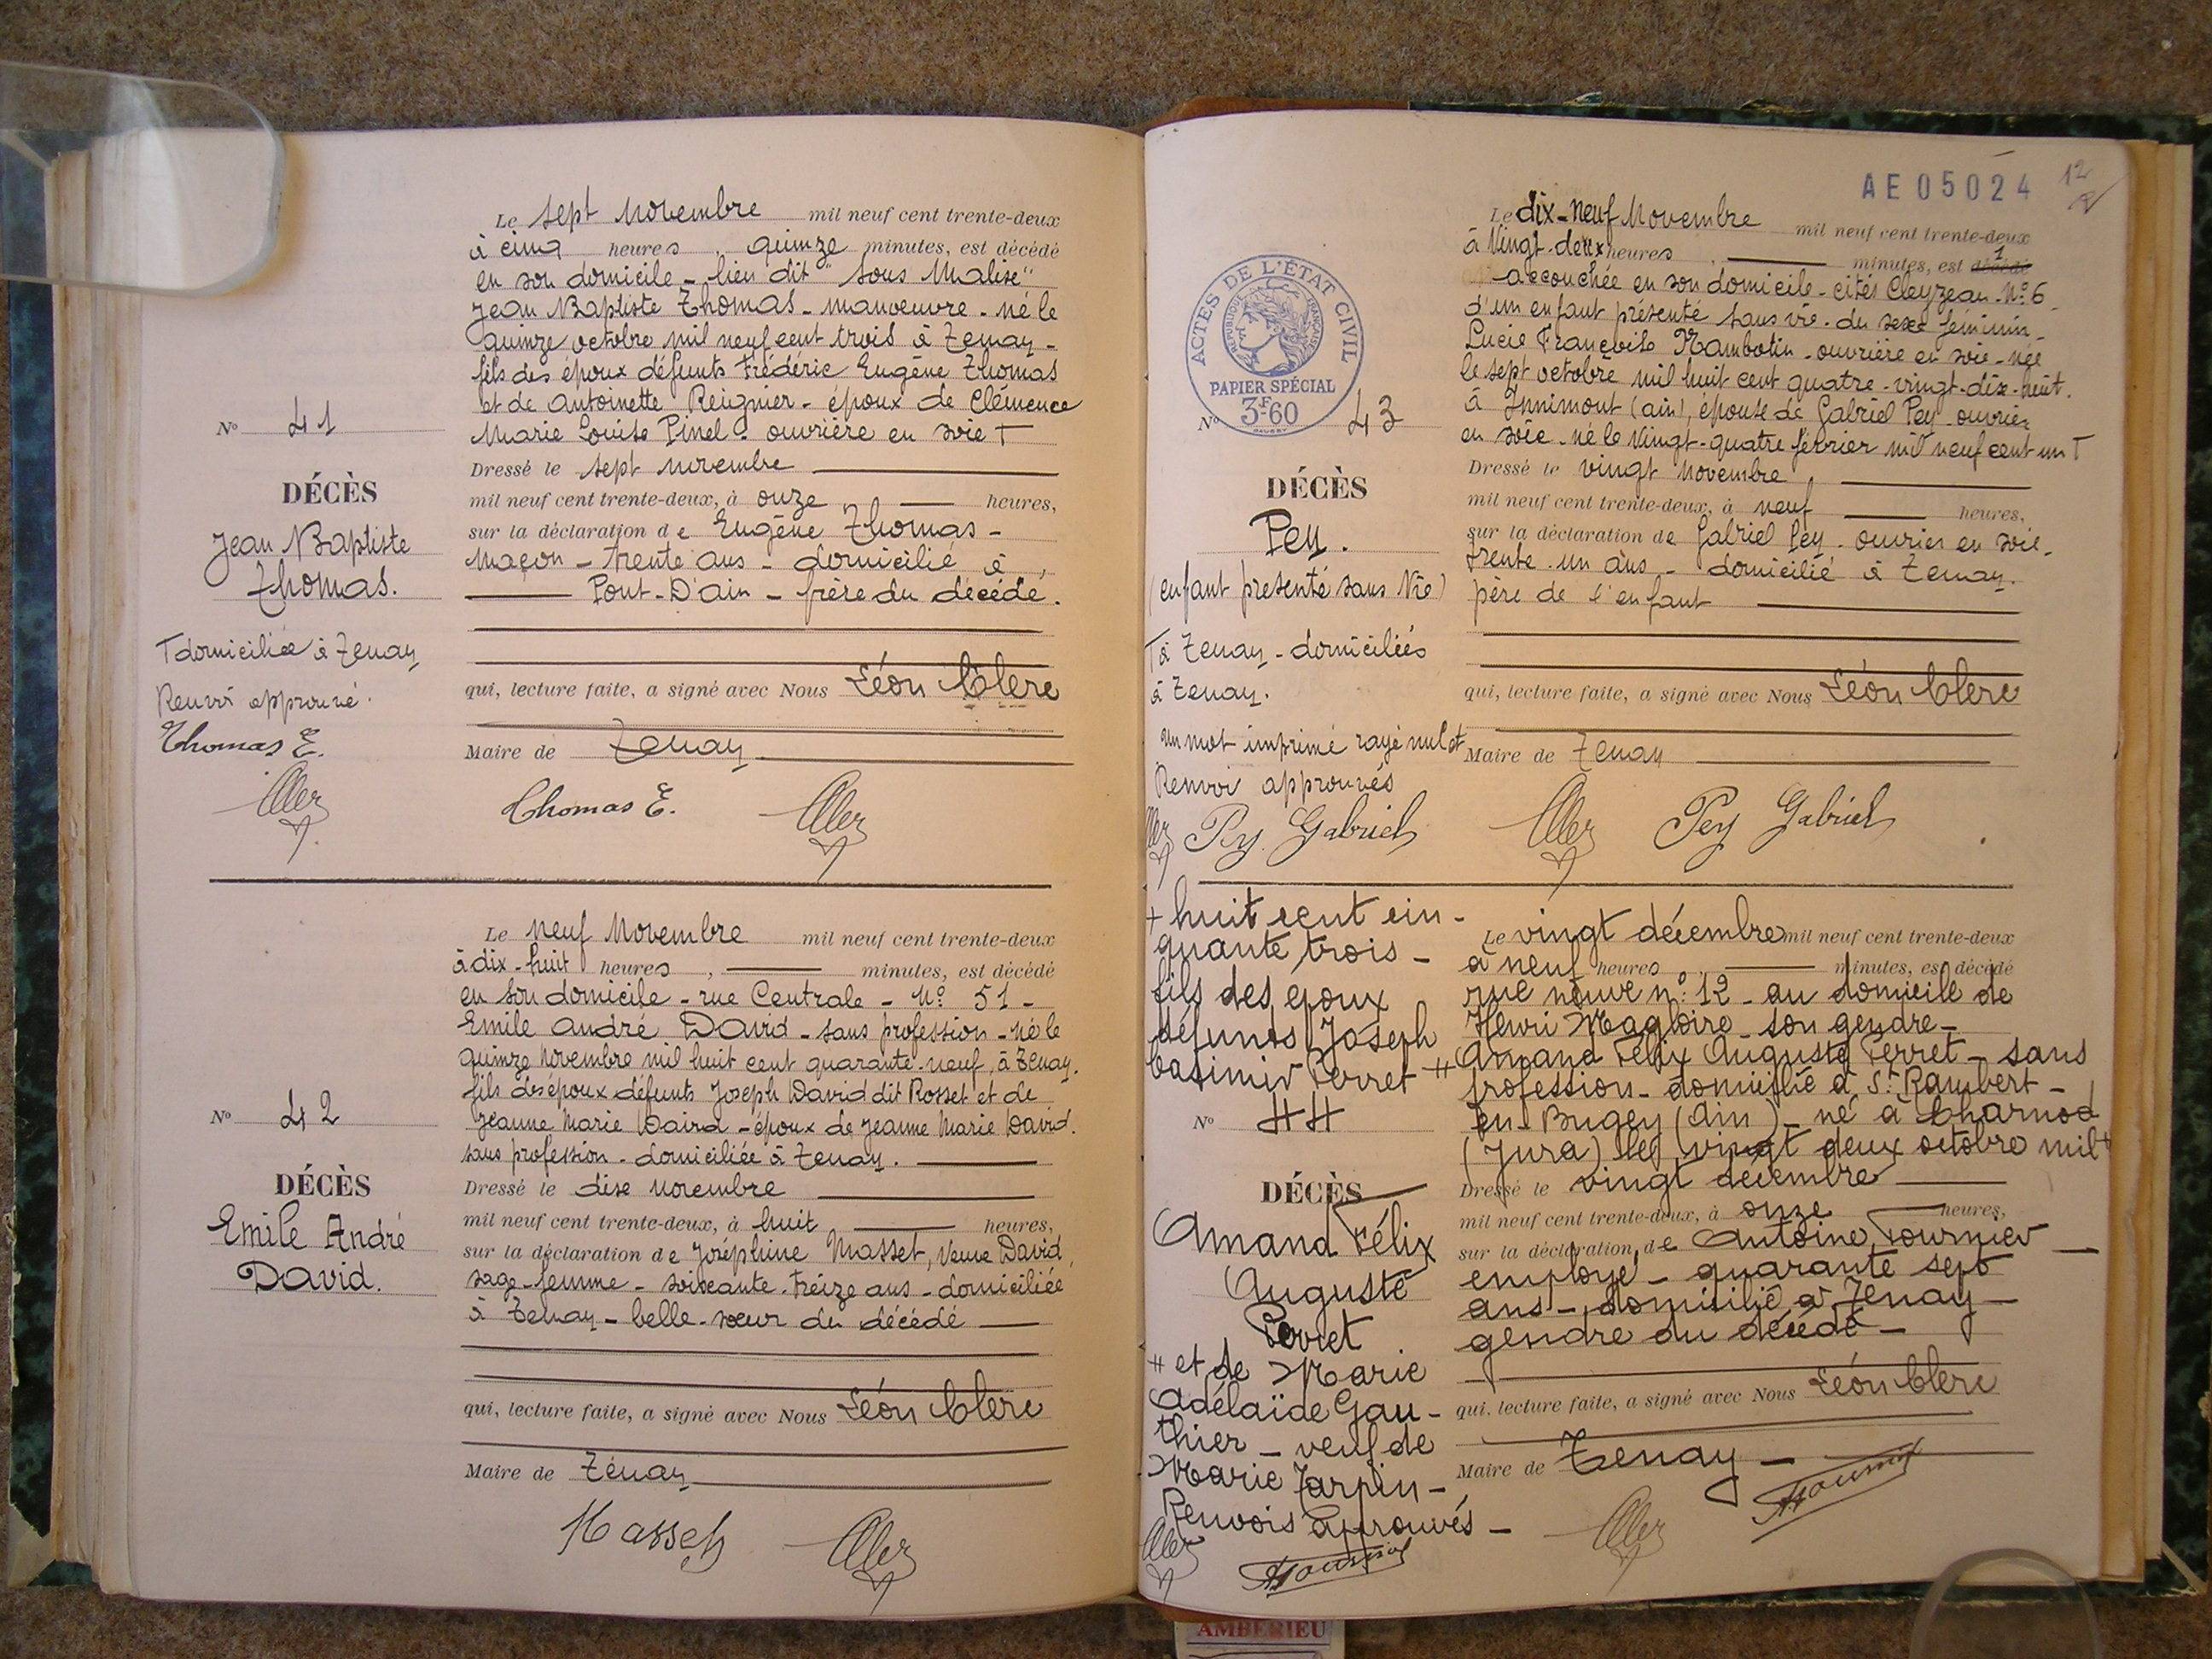 Le sept Novembre mil neuf cent trente-deux
à cinq heures, quinze minutes, est décédé
en son domicile - lieu dit "Sous Malise"
Jean Baptiste Thomas - manoeuvre - né le
quinze octobre mil neuf cent trois à Tenay -
fils des époux défunts Frédéric Eugène Thomas
et de Antoinette Reignier - époux de Clémence
Marie Louise Pinel - ouvrière en soie T
Dressé le sept novembre
mil neuf cent trente-deux, à onze heures,
sur la déclaration de Eugène Thomas -
maçon - trente ans - domicilié à
Pont-D'ain - frère du décédé.
qui, lecture faite, a signé avec Nous Léon Clerc
Maire de Tenay
Thomas E.
No 41
DÉCÈS
Jean Baptiste
Thomas.
T domiciliée à Tenay
Renvoi approuvé.
Thomas E.
Le neuf Novembre mil neuf cent trente-deux
à dix-huit heures, minutes, est décédé
en son domicile - rue Centrale - No 51 -
Emile André David - sans profession - né le
quinze Novembre mil huit cent quarante-neuf, à Tenay.
fils des époux défunts Joseph David dit Rosset et de
Jeanne Marie David - époux de Jeanne Marie David.
sans profession - domiciliée à Tenay.
Dressé le dix novembre
mil neuf cent trente-deux, à huit heures,
sur la déclaration de Joséphine Masset, Veuve David,
sage-femme - soixante-treize ans - domiciliée
à Tenay - belle-soeur du décédé
qui, lecture faite, a signé avec Nous Léon Clerc
Maire de Tenay
Masset
No 42
DÉCÈS
Emile André
David.
AE05024
12
ACTES DE L'ÉTAT CIVIL
RÉPUBLIQUE FRANÇAISE
PAPIER SPÉCIAL
3F60
Le dix-neuf Novembre mil neuf cent trente-deux
à Vingt-deux heures, minutes, est décédé 1
accouchée en son domicile - cités Cleyzeau - No 6
d'un enfant présenté sans vie - du sexe féminin -
Lucie Françoise Mambotin - ouvrière en soie - née
le sept octobre mil huit cent quatre-vingt-dix-huit.
à Innimont (ain), épouse de Gabriel Pey - ouvrier
en soie - né le vingt-quatre février mil neuf cent un T
Dressé le vingt novembre
mil neuf cent trente-deux, à neuf heures,
sur la déclaration de Gabriel Pey - ouvrier en soie -
trente-un ans - domicilié à Tenay.
père de l'enfant
qui, lecture faite, a signé avec Nous Léon Clerc
Maire de Tenay
Pey Gabriel
No 43
DÉCÈS
Pey.
(enfant présenté sans Vie)
T à Tenay - domiciliés
à Tenay.
un mot imprimé rayé nul et
Renvoi approuvés
Pey Gabriel
Le vingt décembre mil neuf cent trente-deux
à neuf heures minutes, est décédé
rue neuve no: 12 - au domicile de
Henri Magloire son gendre -
Amand Félix Auguste Perret - sans
profession - domicilié à St Rambert -
en Bugey (Ain) - né à Charnod
(Jura) le vingt deux octobre mil +
Dressé le vingt décembre
mil neuf cent trente-deux, à onze heures,
sur la déclaration de Antoine Fournier
employé - quarante sept
ans - domicilié à Tenay -
gendre du décédé -
qui, lecture faite, a signé avec Nous Léon Clerc
Maire de Tenay -
+ huit cent cin-
quante trois -
fils des époux
défunts Joseph
Casimir Perret #
No 44
DÉCÈS
Amand Félix
Auguste
Perret
# et de Marie
Adélaïde Gau-
thier - veuf de
Marie Jarpin -
Renvois approuvés -
AMBERIEU